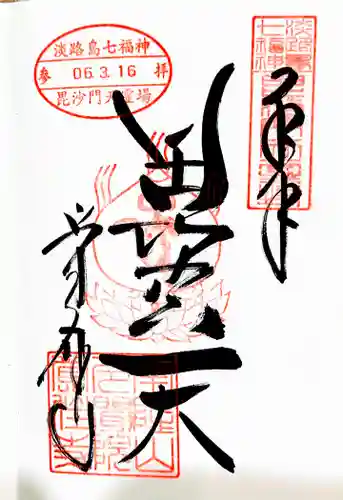 奉拝
淡路島七福神
毘沙門天
淡路島七福神
参 06.3.16 拝
毘沙門天霊場
覚住寺